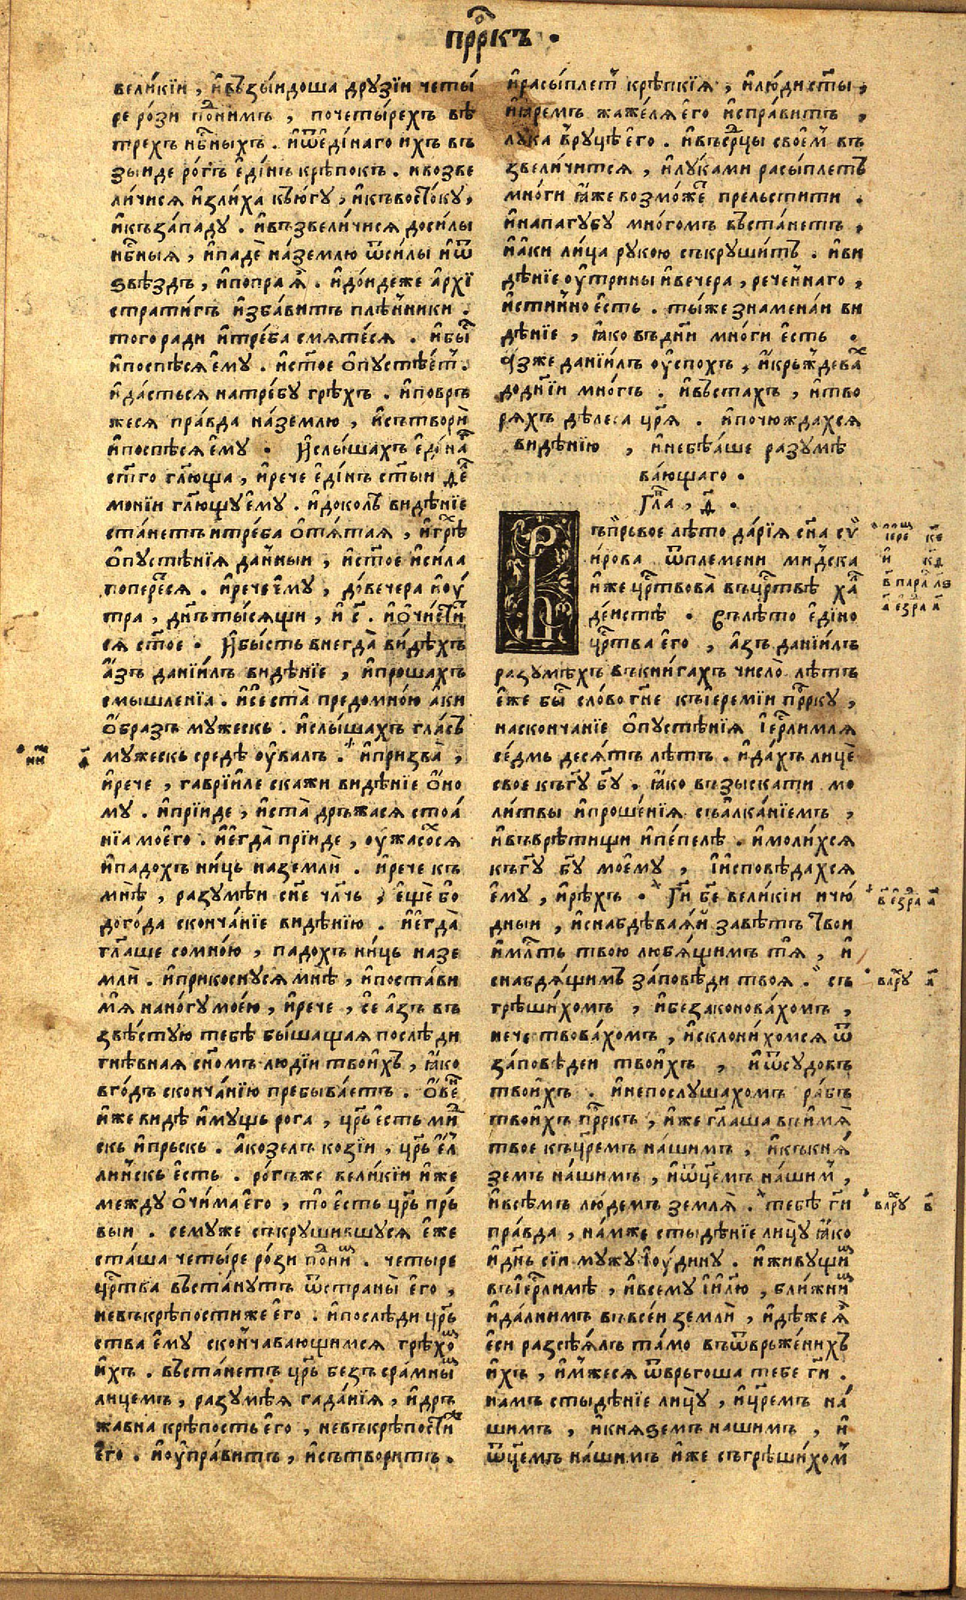 прⷪ҇ркъ .
вели́кїи , и҆въ́зыидоша друзїи четы́
ре ро́зи пⷪ҇ни́мъ , почеты́рехъ вѣ́
трехъ нб҃ныхъ . и҆ѿе҆ди́наго и҆хъ въ
зы́иде ро́гъ е҆ди́нъ крѣ́покъ . и҆возве
ли́чися и҆зли́ха къю́гу , и҆къвосто́ку ,
и҆къза́паду . и҆възвели́чися доси́лы
нб҃ныя , и҆падѐ на́землю ѿси́лы и҆ѿ
ѕвѣ́здъ , и҆попра̀ ꙗ҆̀ . и҆до́идеже а҆рхї
страти́гъ и҆зба́витъ плѣ́нники .
того ради и҆тре́ба смяте́ся . и҆бы́сⷭ҇
и҆поспѣ́ся е҆му̀ . и҆ст҃о́е о҆пустѣ́етъ .
и҆да́стъся натре́бу грѣ́хъ . и҆повръ
жеся пра́вда на́землю , и҆сътворѝ
и҆поспѣ́ся е҆му̀ . И҆слы́шахъ е҆ди́наⷢ҇
ст҃го гл҃юща , и҆рече е҆ди́нъ ст҃ыи де́
мони́и гл҃ющу е҆му̀ . и҆доко́лѣ видѣ́нїе
ста́нетъ и҆тре́ба о҆тя́тая , и҆грѣ́хъ
о҆пустѣ́нїя да́нныи , и҆ст҃о́е и҆си́ла
попере́тся . и҆рече е҆му̀ , до́вечера и҆оу҆́
тра , дн҃ъ ты́сящи , и҆ т҃ . и҆ о҆чи́стит
ся ст҃о́е . И҆бы́сть внегда̀ ви́дѣхъ
а҆́зъ данїи́лъ видѣ́нїе , и҆проша́хъ
смышле́нїа . и҆сѐ ста̀ предомно́ю а҆́ки
о҆́бразъ му́жескъ . и҆слы́шахъ гла́съ
му́жескъ средѣ̀ оу҆ва́лъ . и҆призва̀ ,
и҆рече , гаврїи́ле скажи видѣ́нїе о҆но
му . и҆прїи́де , и҆ста̀ дръжася стоа́
нїа моего . и҆е҆гда̀ прїи́де , оу҆жасо́хся
и҆падо́хъ ни́цъ наземлѝ . и҆рече къ
мнѣ̀ , разумѣ́и сн҃е чл҃чь , е҆щѐ бо
до́года сконча́нїе видѣ́нїю . и҆е҆гда̀
гл҃аше сомно́ю , падо́хъ ни́цъ назе
млѝ . и҆прикосну́ся мнѣ̀ , и҆поста́ви
мя̀ нано́гу мое́ю , и҆рече , сѐ а҆́зъ въ
звѣсту́ю тебѣ̀ бы́шащая послѣ́ди
гнѣ́вная сн҃омъ лю́дїи твои́хъ , ꙗ҆́ко
вго́дъ сконча́нїю пребыва́етъ . о҆ве́нъ
и҆же видѣ̀ и҆му́щь рога , цр҃ь е҆сть ми́дⷭ҇
скъ и҆пръскъ . а҆козе́лъ ко́зїи , цр҃ь е҆́л
ли́нскъ е҆сть . ро́гъже вели́кїи и҆же
между о҆чи́ма е҆го̀ , то̀ е҆сть цр҃ь пръ́
выи . сему́же съкруши́вшуся е҆́же
ста́ша четы́ре ро́зи пⷪ҇ни́мъ . четыре
црⷭ҇тва въста́нутъ ѿстраны̀ е҆го̀ ,
невъкрѣ́постиже е҆го̀ . и҆послѣ́ди црⷭ҇ь
ства е҆му̀ сконча́вающимся грѣхо́мъ
и҆́хъ . въста́нетъ цр҃ь безсра́мныⷨ
лице́мъ , разумѣ́я гада́нїя , и҆дръ
жа́вна крѣ́пость е҆го̀ , невъкрѣ́пости
е҆го̀ . и҆оу҆пра́витъ , и҆сътвори́тъ .
и҆расы́плетъ крѣ́пкїя , и҆лю́ди ст҃ы́ ,
и҆и҆аре́мъ жаже́ля е҆го̀ и҆спра́витъ ,
лука вруцѣ̀ е҆го̀ . и҆въсе́рⷣцы свое́мъ въ
звели́чится , и҆лу́ками расы́плетъ
мно́ги ꙗ҆́же возмо́жеⷮ прельсти́ти .
и҆напа́губу мно́гомъ въста́нетъ ,
и҆ꙗ҆́ки ли́ца рукою съкруши́тъ . и҆ви
дѣ́нїе оу҆́трины и҆ве́чера , рече́ннаго ,
и҆́стинно е҆сть . ты́же знаменаи ви
дѣ́нїе , ꙗ҆́ко въдн҃и мно́ги е҆сть .
а҆́зже данїи́лъ оу҆спо́хъ , и҆кръ́ждева́хъ
до́днїи мно́гъ . и҆въста́хъ , и҆тво
ря́хъ дѣ́леса цр҃я . и҆почюжда́хся
видѣ́нїю , и҆небѣ́аше разумѣ́
ва́ющаго .
Гла , д҃ .
Въпръ́вое лѣ́то да́рїя сн҃а су̀
и́рова ѿпле́мени ми́дска
и҆же црⷭ҇твова̀ въцрⷭ҇твѣ ха́л
де́истѣ . Съ́лѣто е҆ди́но
црⷭ҇тва е҆го̀ , а҆́зъ данїи́лъ
разумѣ́хъ въкни́гахъ число̀ лѣ́тъ
е҆́же быⷭ҇ сло́во гн҃е къїеремїи прⷪ҇рку ,
насконча́нїе о҆пустѣ́нїя і҆ерⷭ҇лимля
се́дмь деся́тъ лѣ́тъ . и҆да́хъ лицѐ
свое къгу҃ бг҃у , ꙗ҆́ко възыска́ти мо
ли́твы и҆проше́нїя съалка́нїемъ ,
и҆въврѣ́тищи и҆пе́пелѣ . и҆моли́хся
къгу҃ бг҃у мое́му , и҆и҆сповѣ́дахся
е҆му , и҆рѣ́хъ . Гп҃и бж҃е вели́кїи и҆чю́
дныи , и҆снабдѣва́яи завѣ́тъ твои
и҆млⷭ҇ть твою̀ любя́щимъ тя̀ , и҆
снабдя́щимъ за́повѣди твоя̀ . съ
грѣши́хомъ , и҆безаконова́хомъ ,
нечествова́хомъ , и҆склони́хомся ѿ
за́повѣдеи твои́хъ , и҆ѿсудо́въ
твои́хъ . и҆непослу́шахомъ ра́бъ
твои́хъ прⷪ҇ркъ , и҆́же гл҃аша въи҆́мя
твое къцр҃емъ на́шимъ , и҆къкня́
земъ на́шимъ , и҆ѿце́мъ на́шим ,
и҆всѣ́мъ лю́демъ земля̀ . тебѣ̀ гп҃и
пра́вда , на́мже стыдѣ́нїе лицу ꙗ҆́ко
и҆дн҃ь сїи му́жу і҆ю́дину . и҆живу́щиⷨ
въі҆ерⷭ҇ли́мѣ , и҆всему̀ і҆и҃лю , бли́жниⷨ
и҆да́лнимъ въвсе́и землѝ , и҆дѣ́же ꙗ҆̀
е҆си разсѣ́ялъ та́мо въѿвръже́нихъ
и҆́хъ , и҆́мжеся ѿвръго́ша тебе гп҃и .
на́мъ стыдѣ́нїе лицу , и҆цр҃емъ на́
шимъ , и҆кня́ѕемъ на́шимъ , и҆
ѿце́мъ на́шимъ и҆́же съгрѣши́хом
вⷭ҇ е҆зра а҃
вару а҃
вару в҃